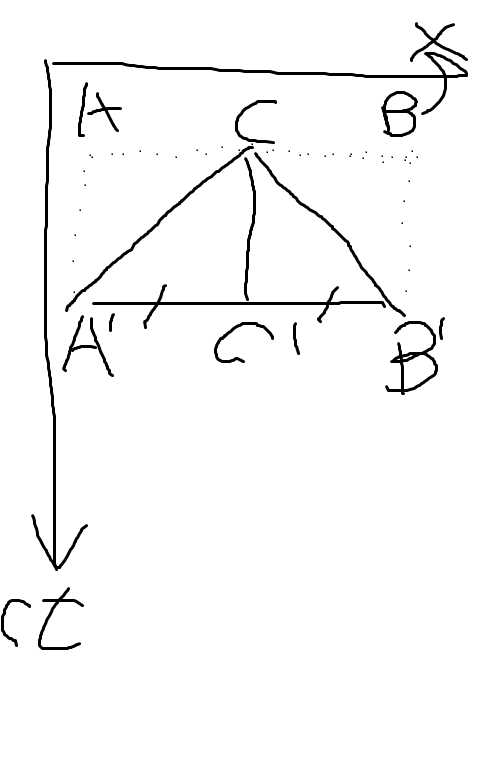 x
A C B
A' C' B'
ct